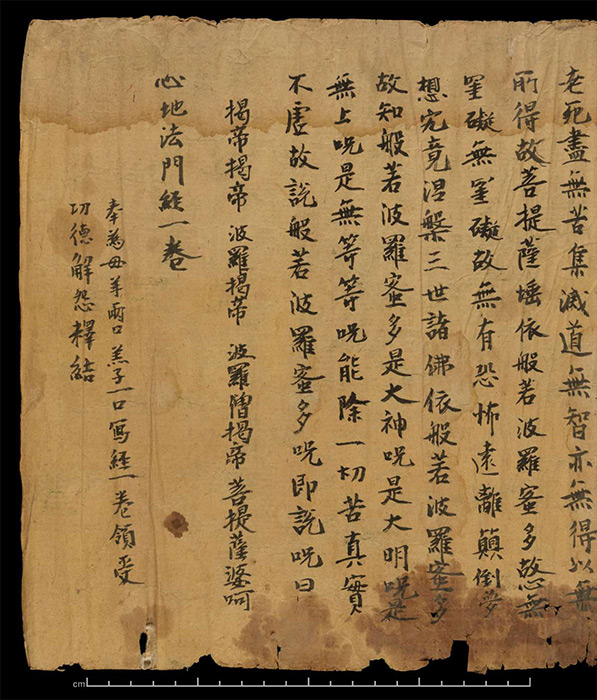 老死盡無苦集滅道無智亦無得以無
所得故菩提薩埵依般若波羅蜜多故心無
罣礙無罣礙故無有恐怖遠離顛倒夢
想究竟涅槃三世諸佛依般若波羅蜜多
故知般若波羅蜜多是大神呪是大明呪是
無上呪是無等等呪能除一切苦真實
不虛故說般若波羅蜜多呪即說呪曰
揭帝揭帝 波羅揭帝 波羅僧揭帝 菩提薩婆呵
心地法門經一卷
奉為母羊兩口羔子一口寫經一卷領受
功德解怨釋結
cm